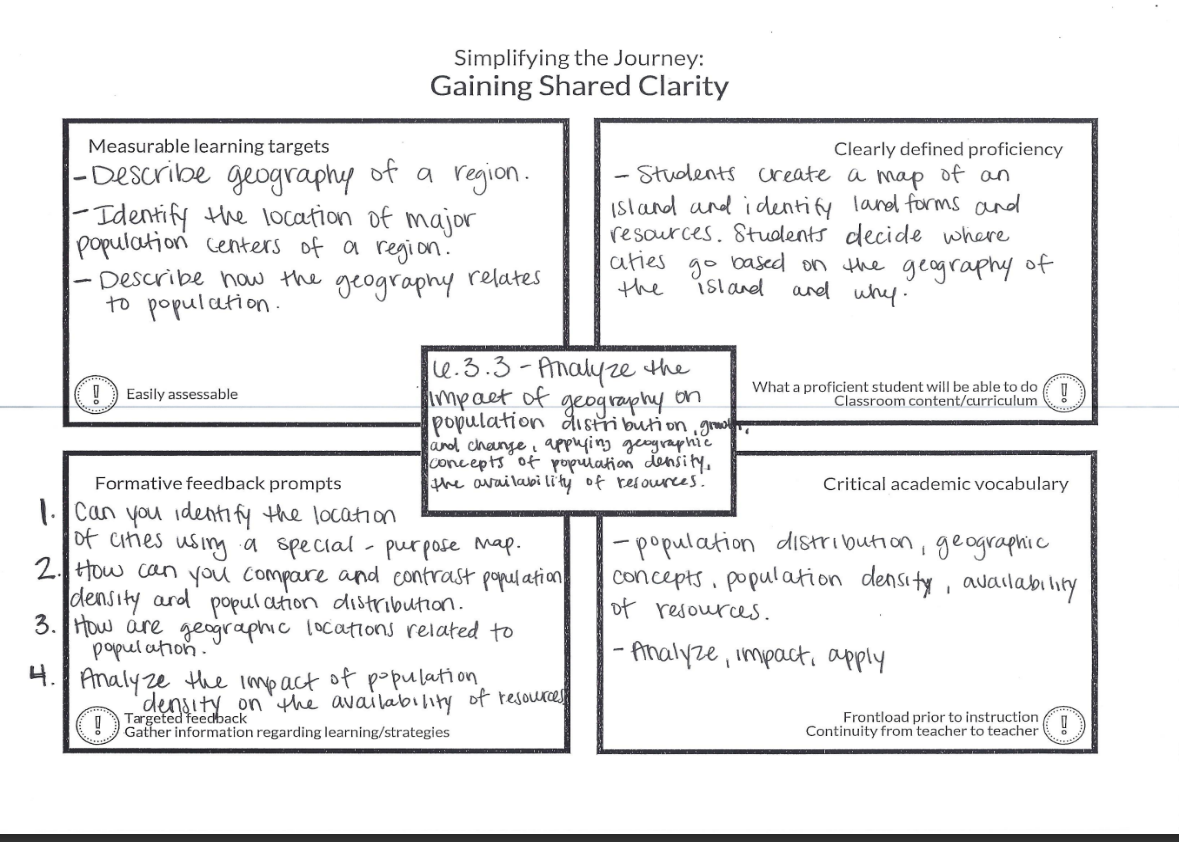 Simplifying the Journey:
Gaining Shared Clarity
Measurable learning targets
- Describe geography of a region.
- Identify the location of major
population centers of a region.
- Describe how the geography relates
to population.
! Easily assessable
Clearly defined proficiency
- Students create a map of an
island and identify landforms and
resources. Students decide where
cities go based on the geography of
the island and why.
What a proficient student will be able to do
Classroom content/curriculum !
6.3.3 - Analyze the
impact of geography on
population distribution, growth,
and change, applying geographic
concepts of population density,
the availability of resources.
Formative feedback prompts
1. Can you identify the location
of cities using a special-purpose map.
2. How can you compare and contrast population
density and population distribution.
3. How are geographic locations related to
population.
4. Analyze the impact of population
density on the availability of resources
! Targeted feedback
Gather information regarding learning/strategies
Critical academic vocabulary
- population distribution, geographic
concepts, population density, availability
of resources.
- Analyze, impact, apply
Frontload prior to instruction
Continuity from teacher to teacher !